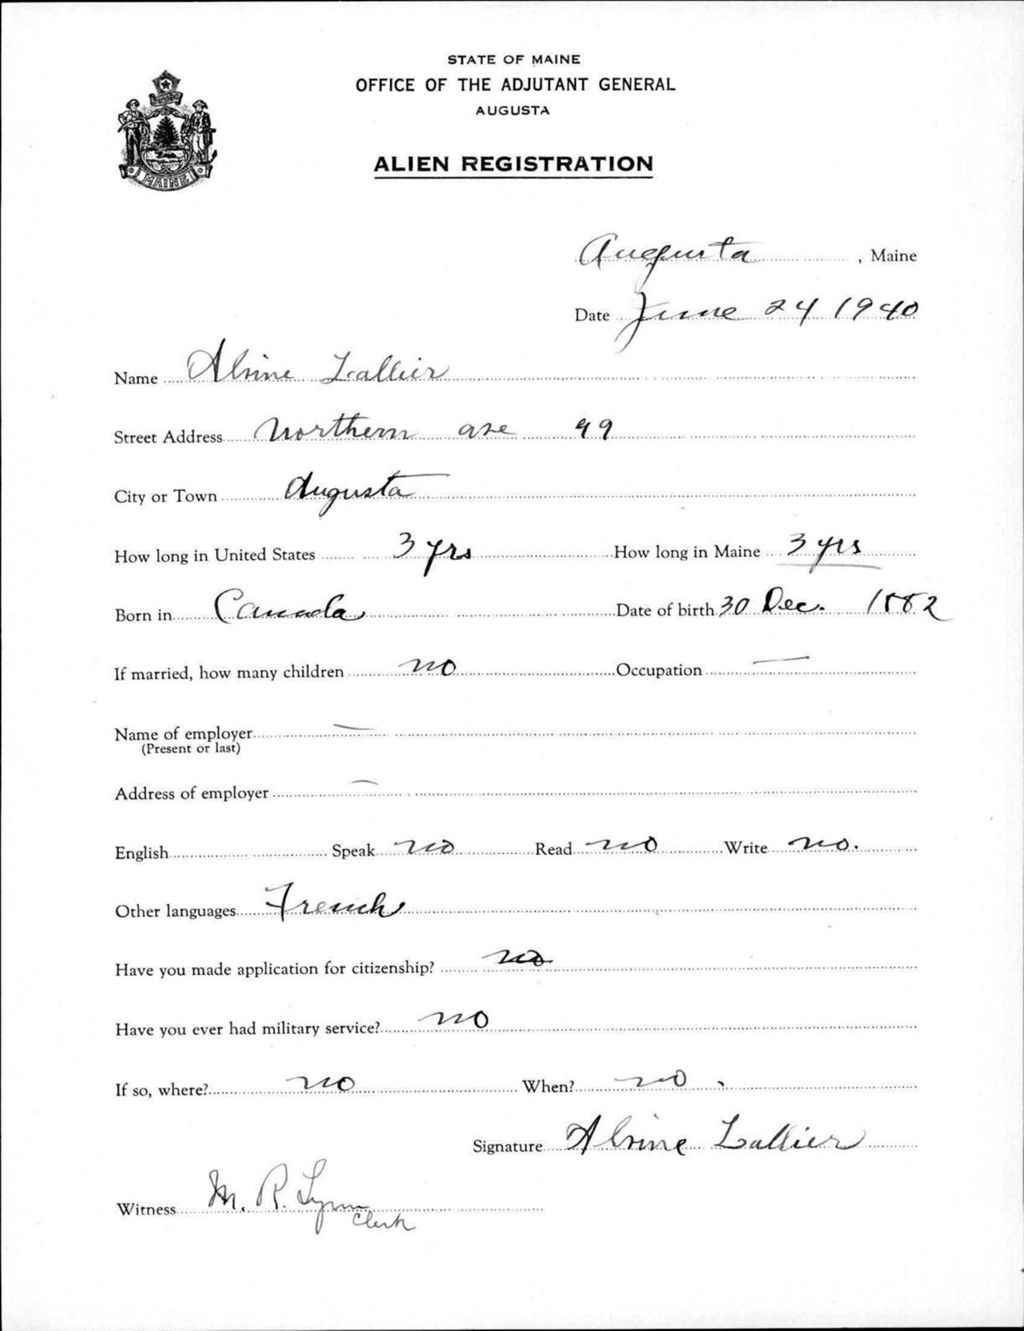 STATE OF MAINE
OFFICE OF THE ADJUTANT GENERAL
AUGUSTA
ALIEN REGISTRATION
MAINE
Augusta, Maine
Date June 24 1940
Name Lallier
Street Address Northern ave 99
City or Town Augusta
How long in United States 3 yrs How long in Maine 3 yrs
Born in Canada Date of birth 30 Dec. 1882
If married, how many children no Occupation —
Name of employer —
(Present or last)
Address of employer —
English Speak no Read no Write no.
Other languages French
Have you made application for citizenship? no
Have you ever had military service? no
If so, where? no When? no.
Signature Lallier
Witness M. R. Lynn
Clerk